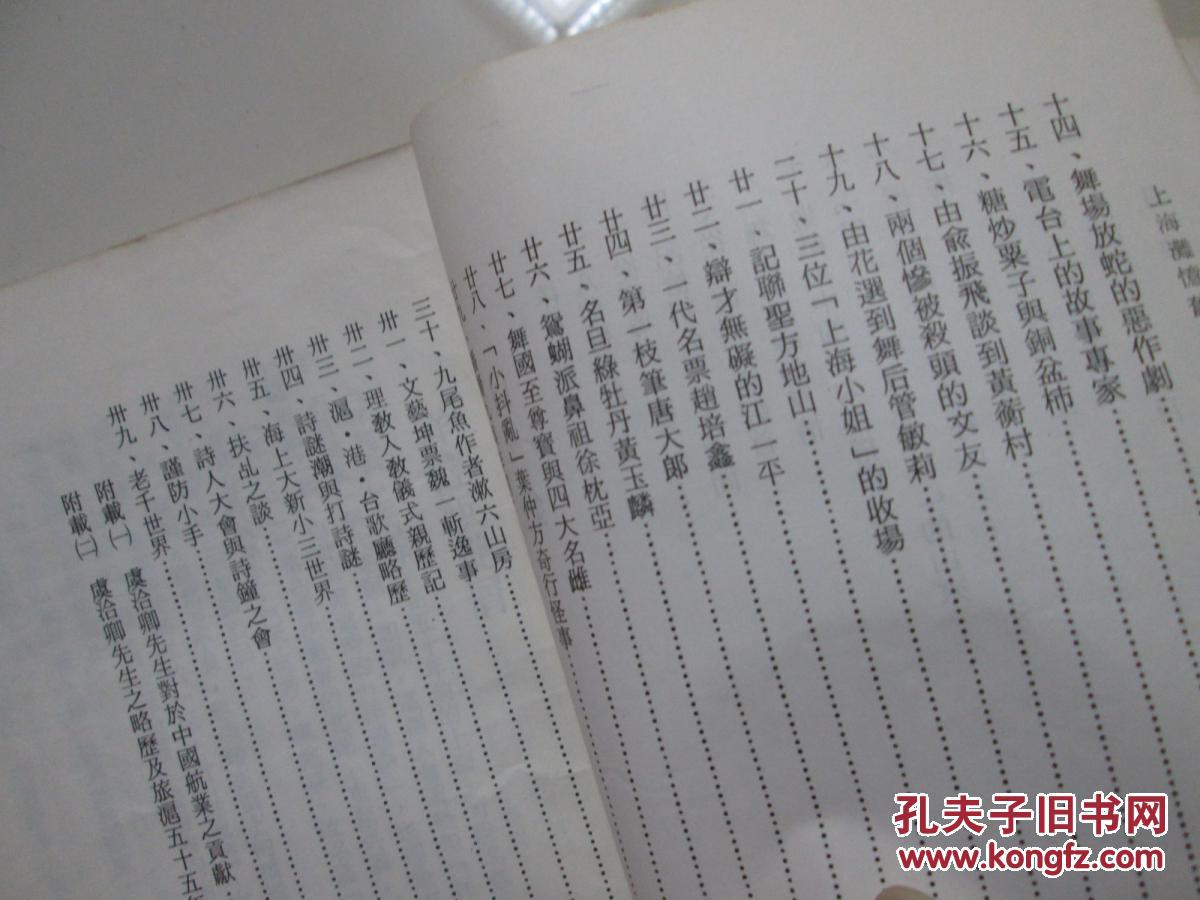 上海灘憶
十四、舞場放蛇的惡作劇
十五、電台上的故事專家
十六、糖炒栗子與銅盆柿
十七、由俞振飛談到黃蘅村
十八、兩個慘被殺頭的文友
十九、由花選到舞后管敏莉
二十、三位「上海小姐」的收場
廿一、記聯聖方地山
廿二、辯才無礙的江一平
廿三、一代名票趙培鑫
廿四、第一枝筆唐大郎
廿五、名旦綠牡丹黃玉麟
廿六、鴛蝴派鼻祖徐枕亞
廿七、舞國至尊寶與四大名雌
廿八、「小抖亂」葉仲方奇行怪事
三十、九尾魚作者漱六山房
卅一、文藝坤票魏一斬逸事
卅二、理教入教儀式親歷記
卅三、滬・港・台歌廳略歷
卅四、詩謎潮與打詩謎
卅五、海上大新小三世界
卅六、扶乩之談
卅七、詩人大會與詩鐘之會
卅八、謹防小手
卅九、老千世界
附載㈠ 虞洽卿先生對於中國航業之貢獻
附載㈡ 虞洽卿先生之略歷及旅滬五十五年
孔夫子旧书网
www.kongfz.com